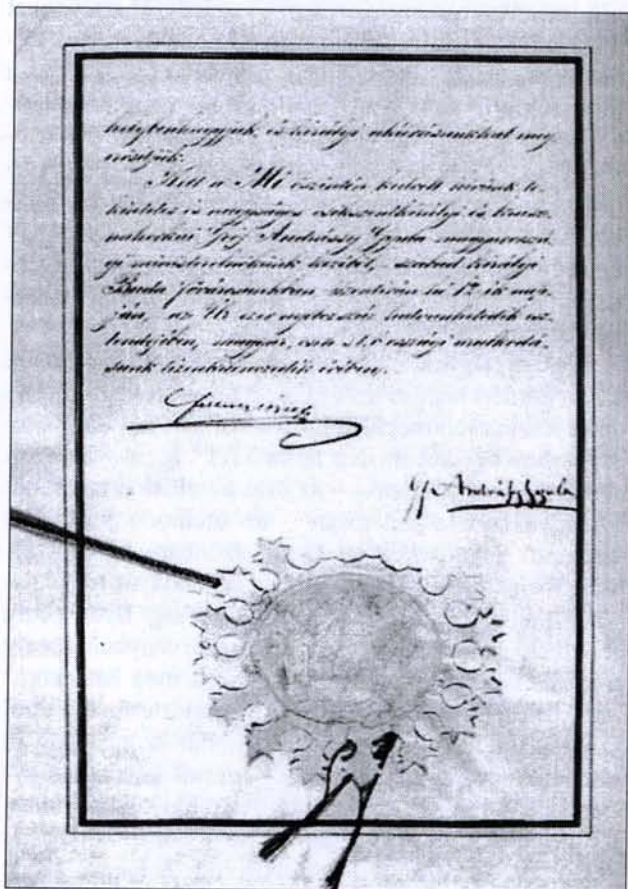 helybenhagyjuk, és királyi akaratunkkal meg
erősítjük.
Kelt a Mi őszintén kedvelt hívünk te-
kintetes és nagyságos csikszentkirályi és krasz-
nahorkai Gróf Andrássy Gyula magyarorszá
gi miniszterelnökünk kezéből, szabad királyi
Buda fővárosunkban szentiván hó 12-ik nap-
ján, az Úr ezer nyolcszáz hatvanhetedik esz-
tendejében, uralkodá-
sunk évében.
Ferencz József
Gf Andrássy Gyula